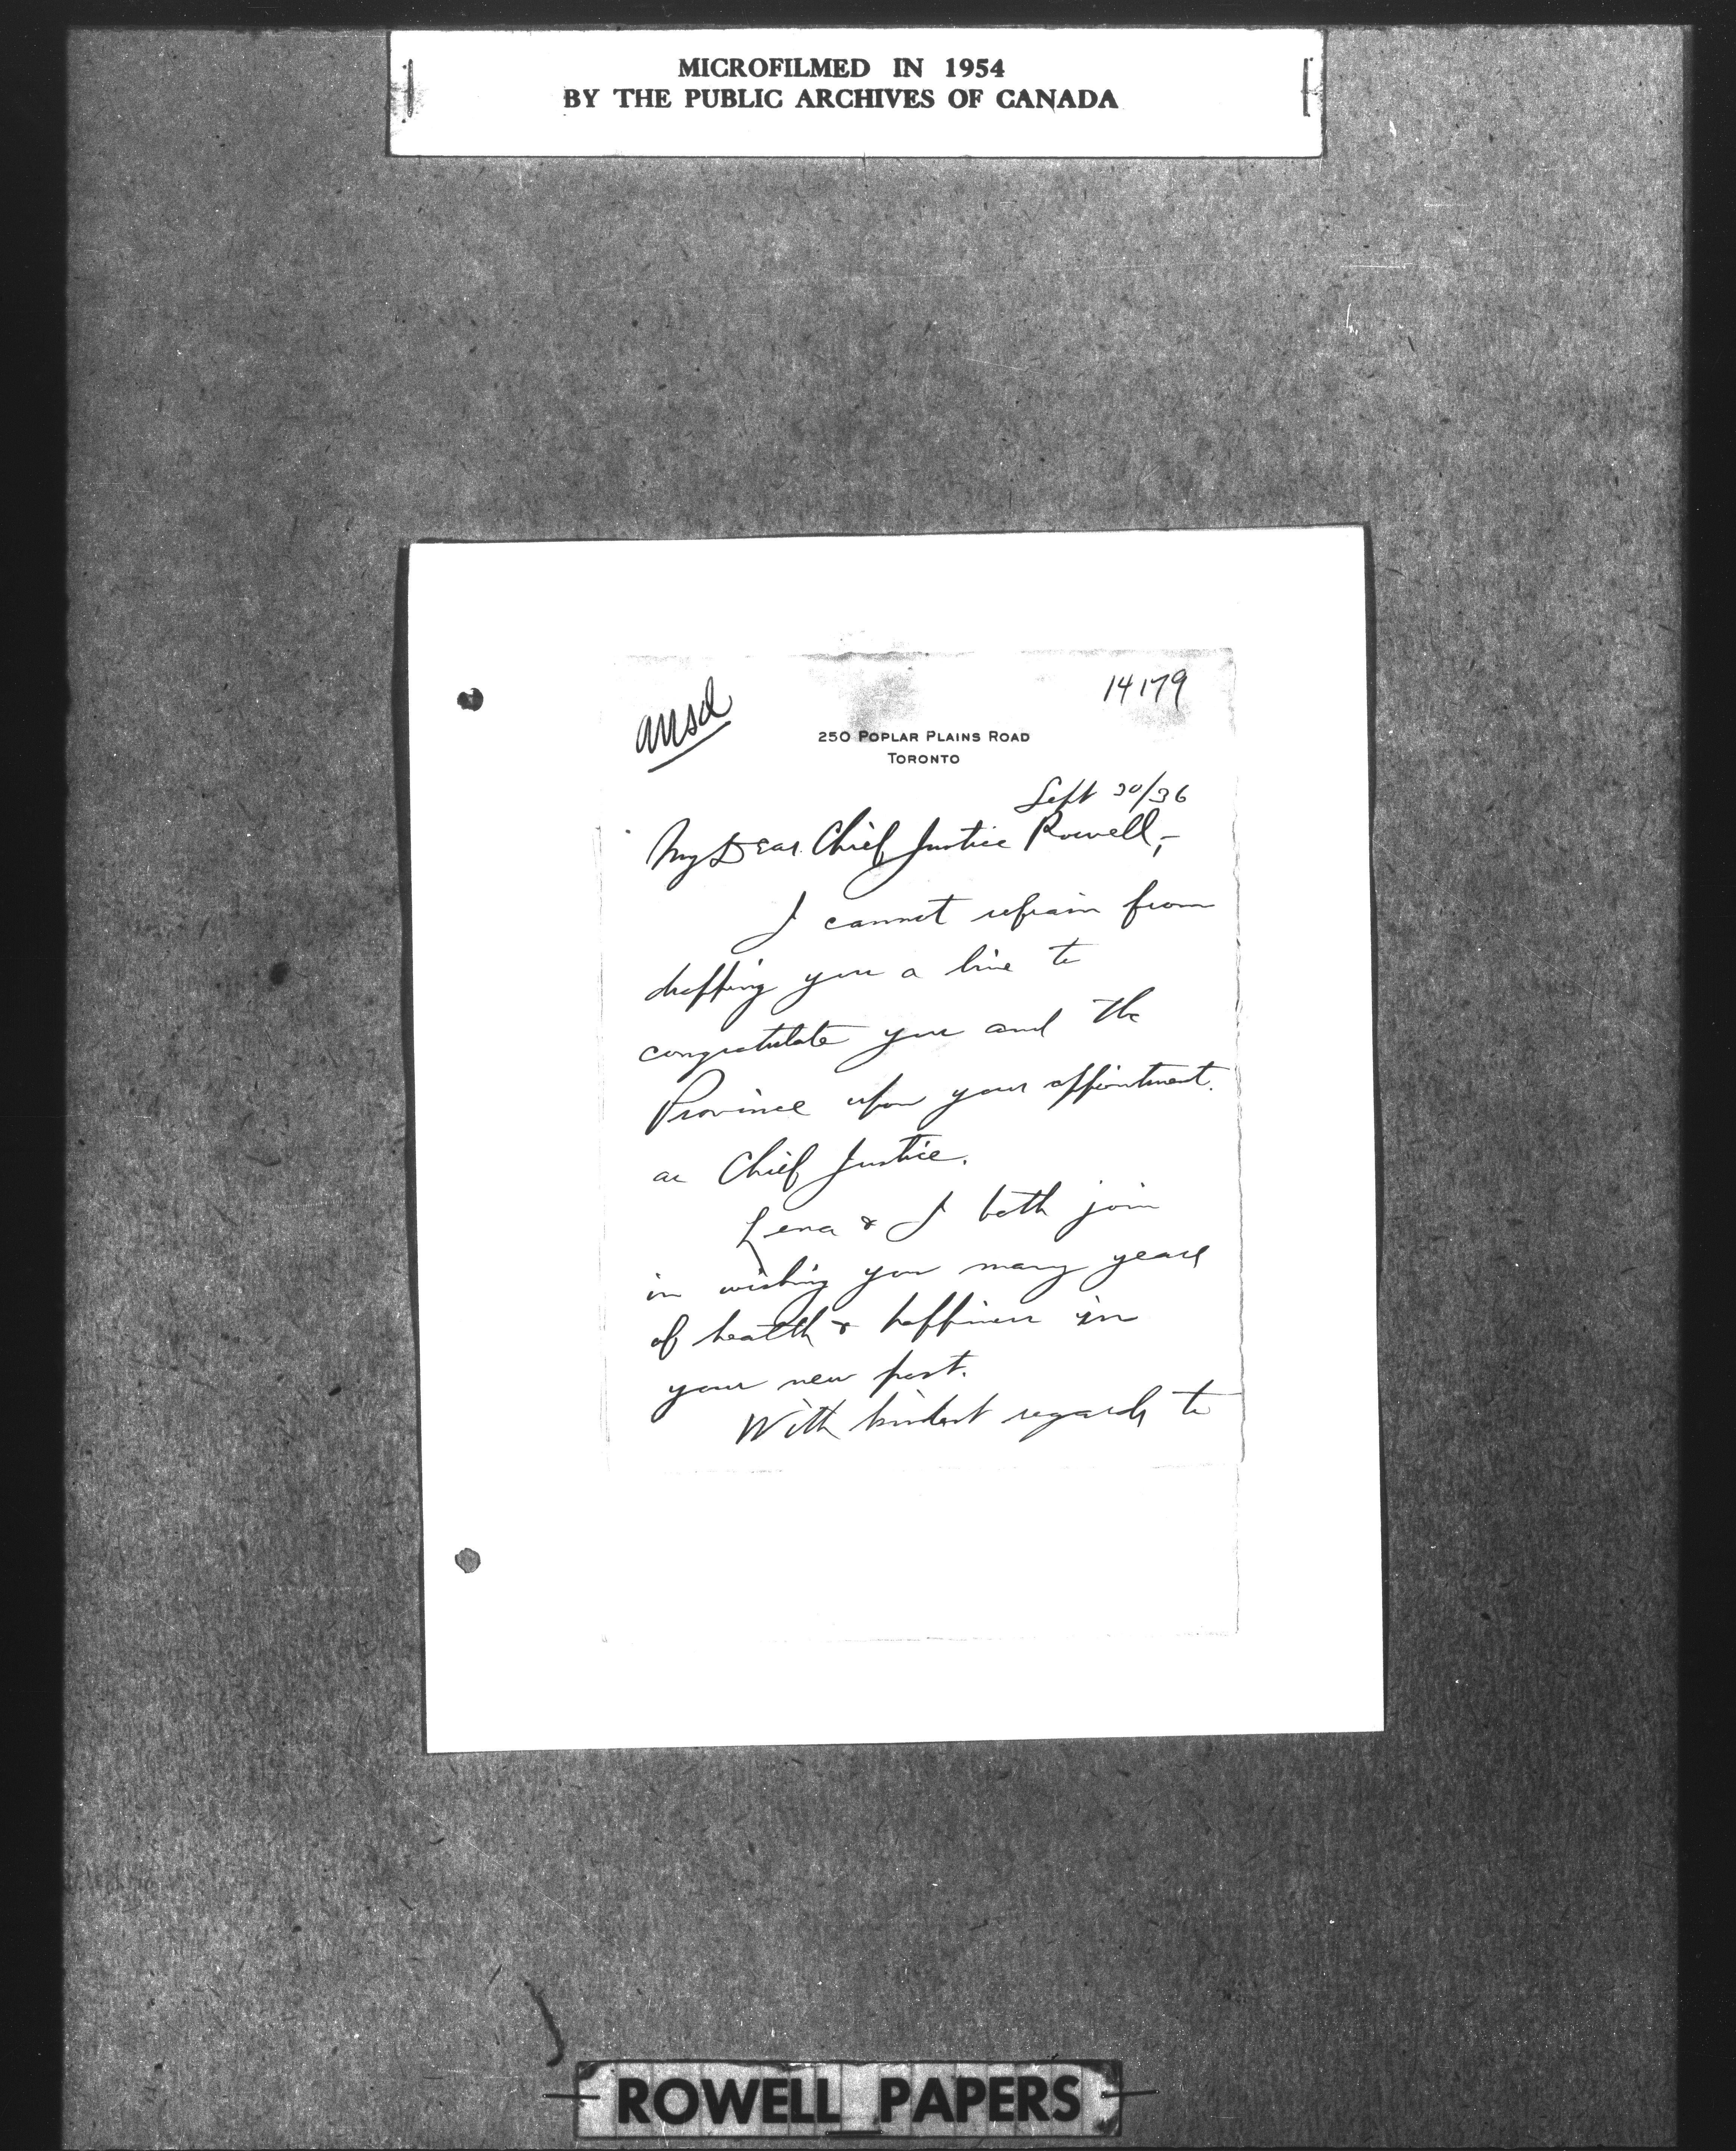 MICROFILMED IN 1954
BY THE PUBLIC ARCHIVES OF CANADA
ansd
14179
250 POPLAR PLAINS ROAD
TORONTO
Sept 30/36
My Dear Chief Justice Rowell,-
I cannot refrain from
dropping you a line to
congratulate you and the
Province upon your appointment.
as Chief Justice.
Lena & I both join
in wishing you many years
of health & happiness in
your new post.
With kindest regards to
ROWELL PAPERS